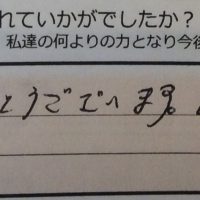 れていかがでしたか?
私達の何よりの力となり今後
とうごでへます。